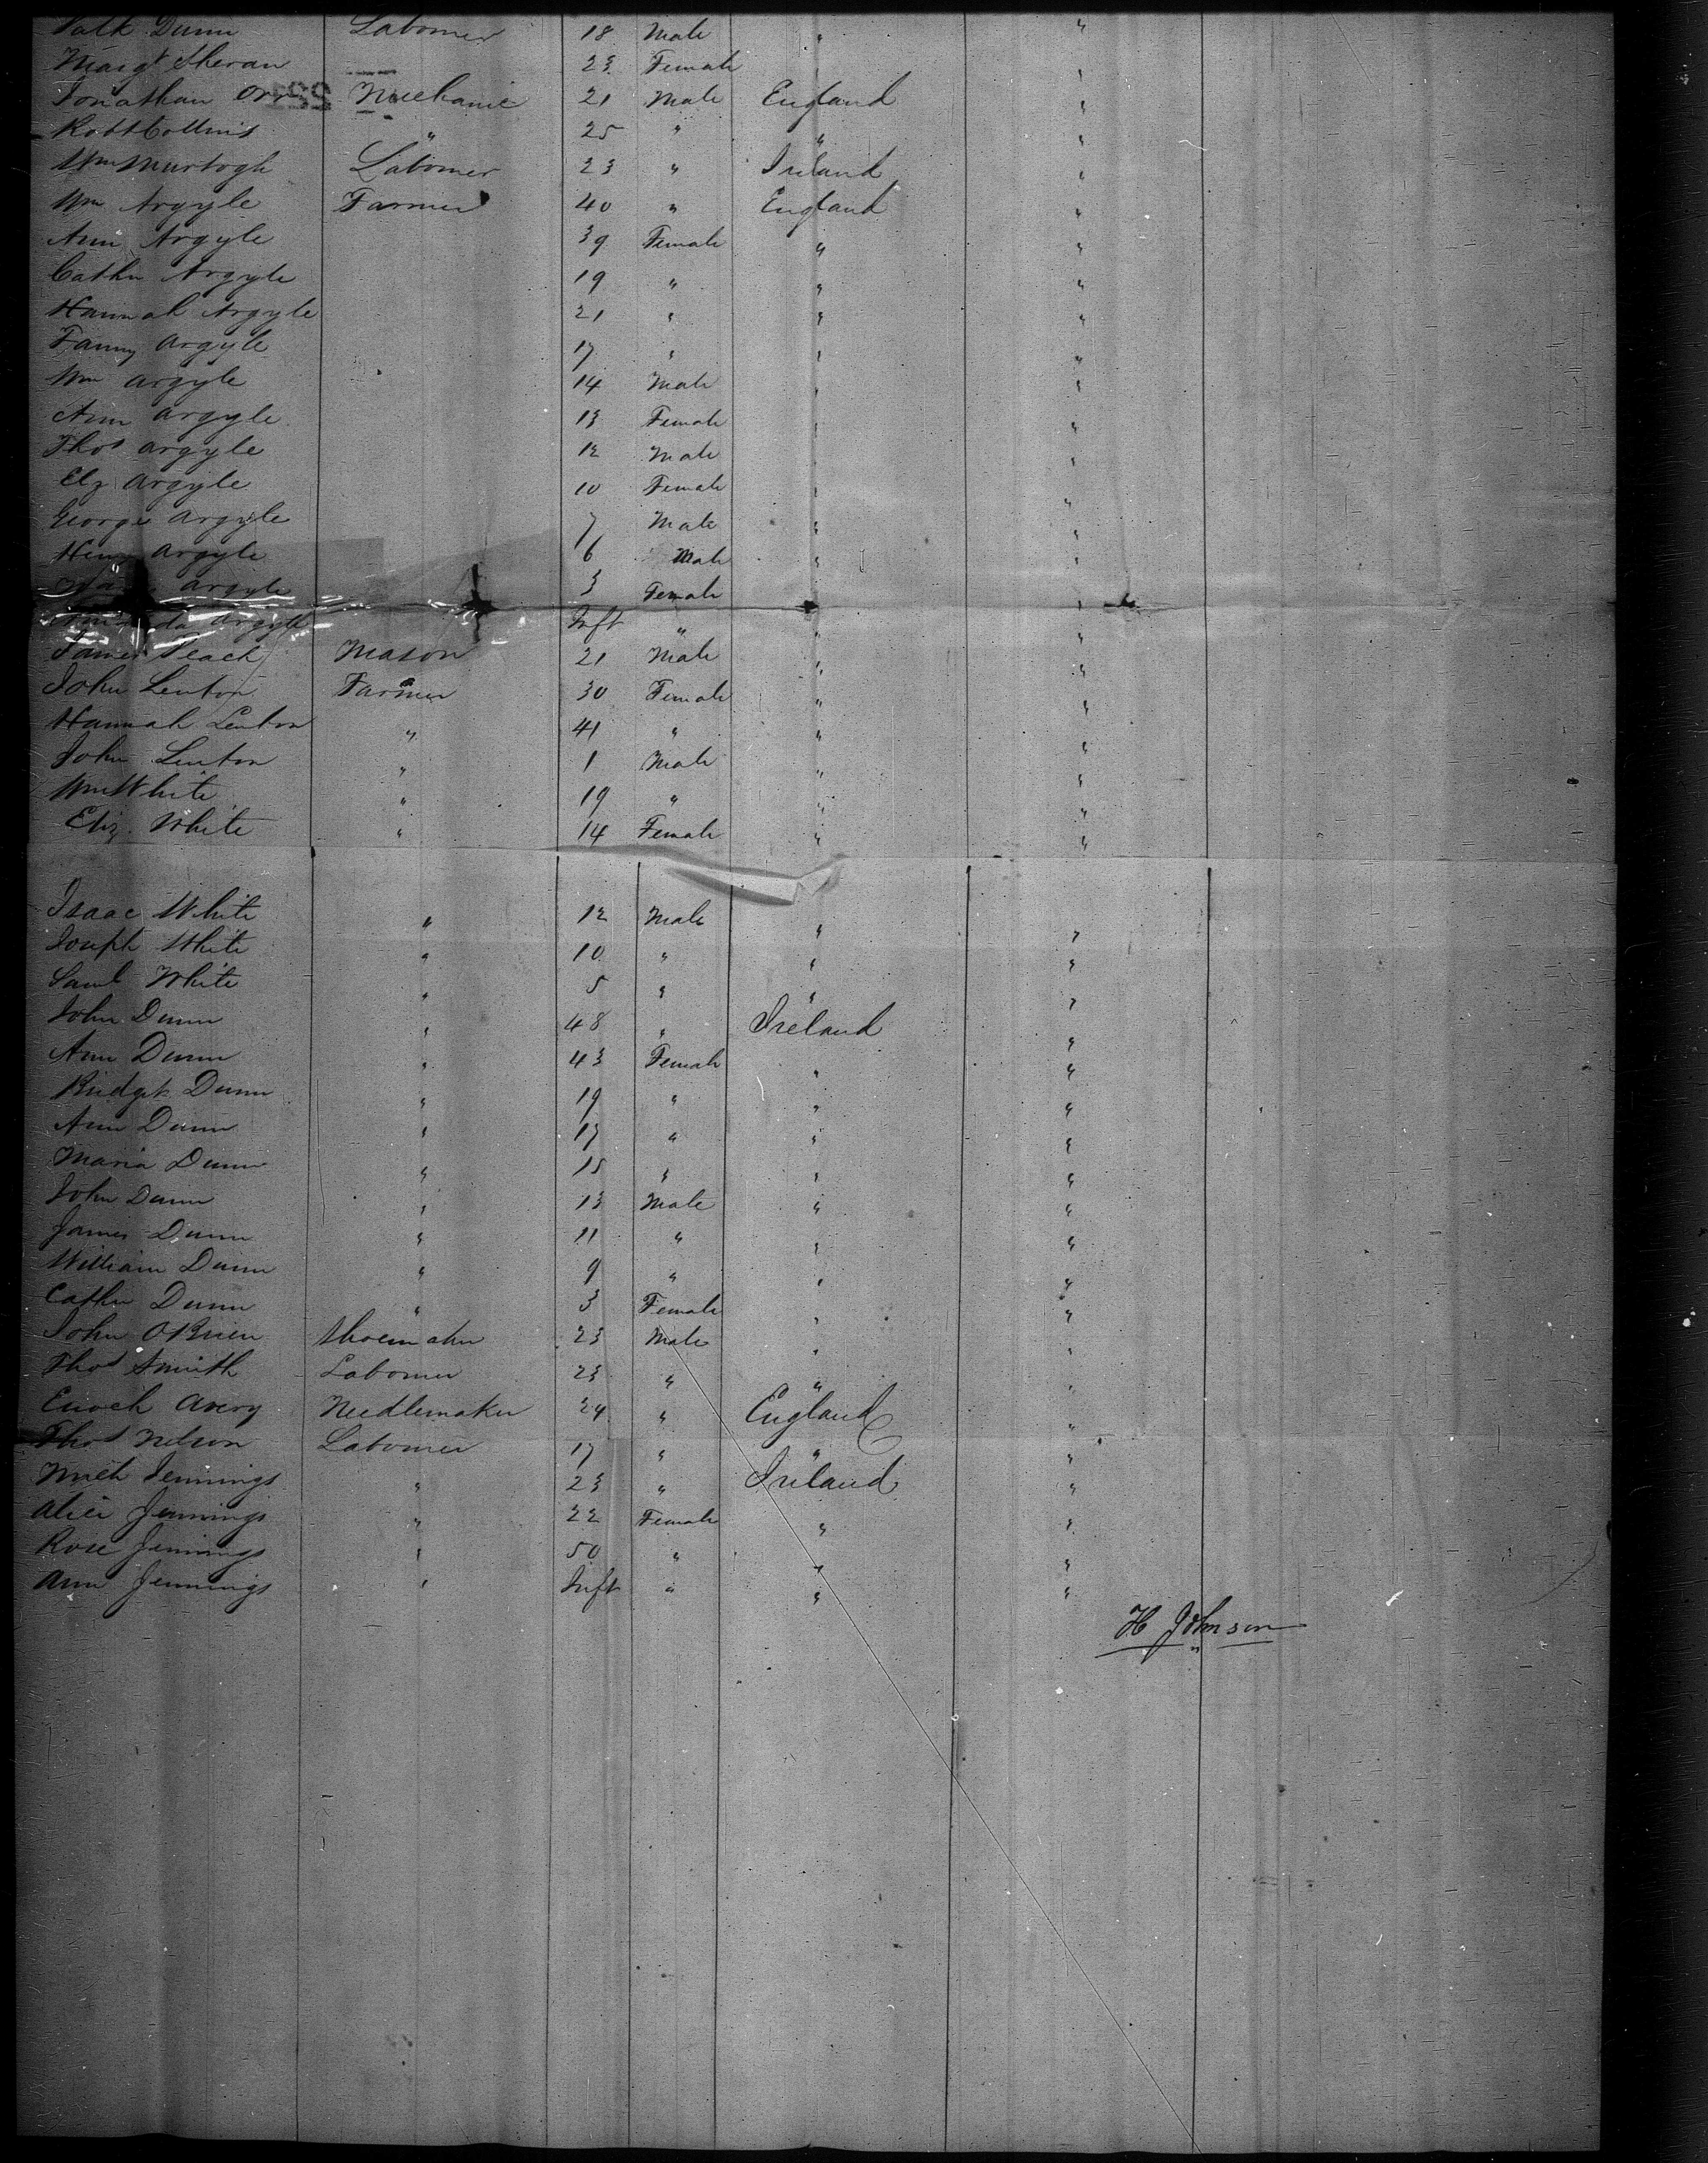 Patk Dunn Labourer 18 Male "
Margt Sheran 23 Female "
Jonathan Orr Mechanic 21 Male England "
Robt Collins " 25 " " "
Wm Murtogh Labourer 23 " Ireland "
Wm Argyle Farmer 40 " England "
Ann Argyle 39 Female " "
Cathn Argyle 19 " " "
Hannah Argyle 21 " " "
Fanny Argyle 17 " " "
Wm Argyle 14 Male " "
Ann Argyle 13 Female " "
Thos Argyle 12 Male "
Elz Argyle 10 Female " "
George Argyle 7 Male " "
Henry Argyle 6 Male " "
Argyle 3 Female "
Argyle Inft " " "
James Peach Mason 21 Male " "
John Lenton Farmer 30 Female " "
Hannah Lenton " 41 " " "
John Lenton " 1 Male " "
Wm White " 19 " " "
Eliz. White " 14 Female " "
Isaac White " 12 Male " "
Joseph White " 10 " " "
Saml White " 5 " " "
John Dunn " 48 " Ireland "
Ann Dunn " 43 Female " "
Bridget Dunn " 19 " " "
Ann Dunn " 17 " " "
Maria Dunn " 15 " " "
John Dunn " 13 Male " "
James Dunn " 11 " " "
William Dunn " 9 " " "
Cathn Dunn " 3 Female " "
John OBrien Shoemaker 23 Male " "
Thos Smith Labourer 23 " " "
Enoch Avery Needlemaker 24 " England "
Thos Nelson Labourer 17 " " "
Mich Jennings " 23 " Ireland "
Alice Jennings " 22 Female " "
Rose Jennings " 50 " " "
Ann Jennings " Inft " " "
H Johnson